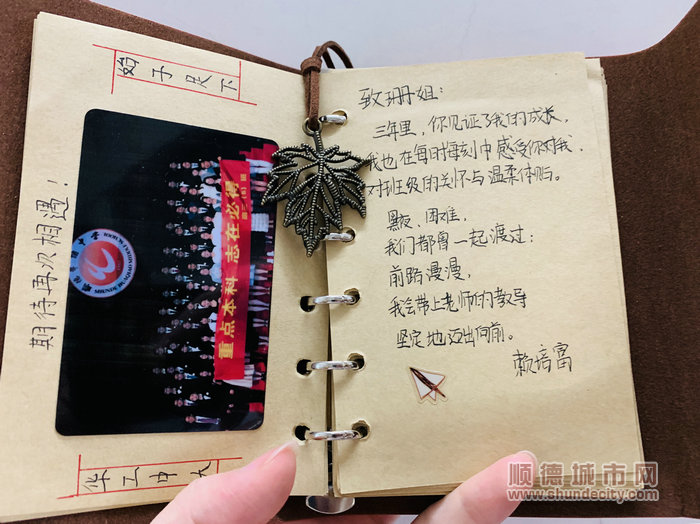 始于足下
期待再次相遇！
重点本科 志在必得
SHUNDE
华工中大
致珊姐：
三年里，你见证了我的成长，
我也在每时每刻中感受你对我、
对班级的关怀与温柔体贴。
黑板、困难，
我们都曾一起渡过；
前路漫漫，
我会带上老师的教导
坚定地迈出向前。
赖培富
顺德城市网
www.shundecity.com